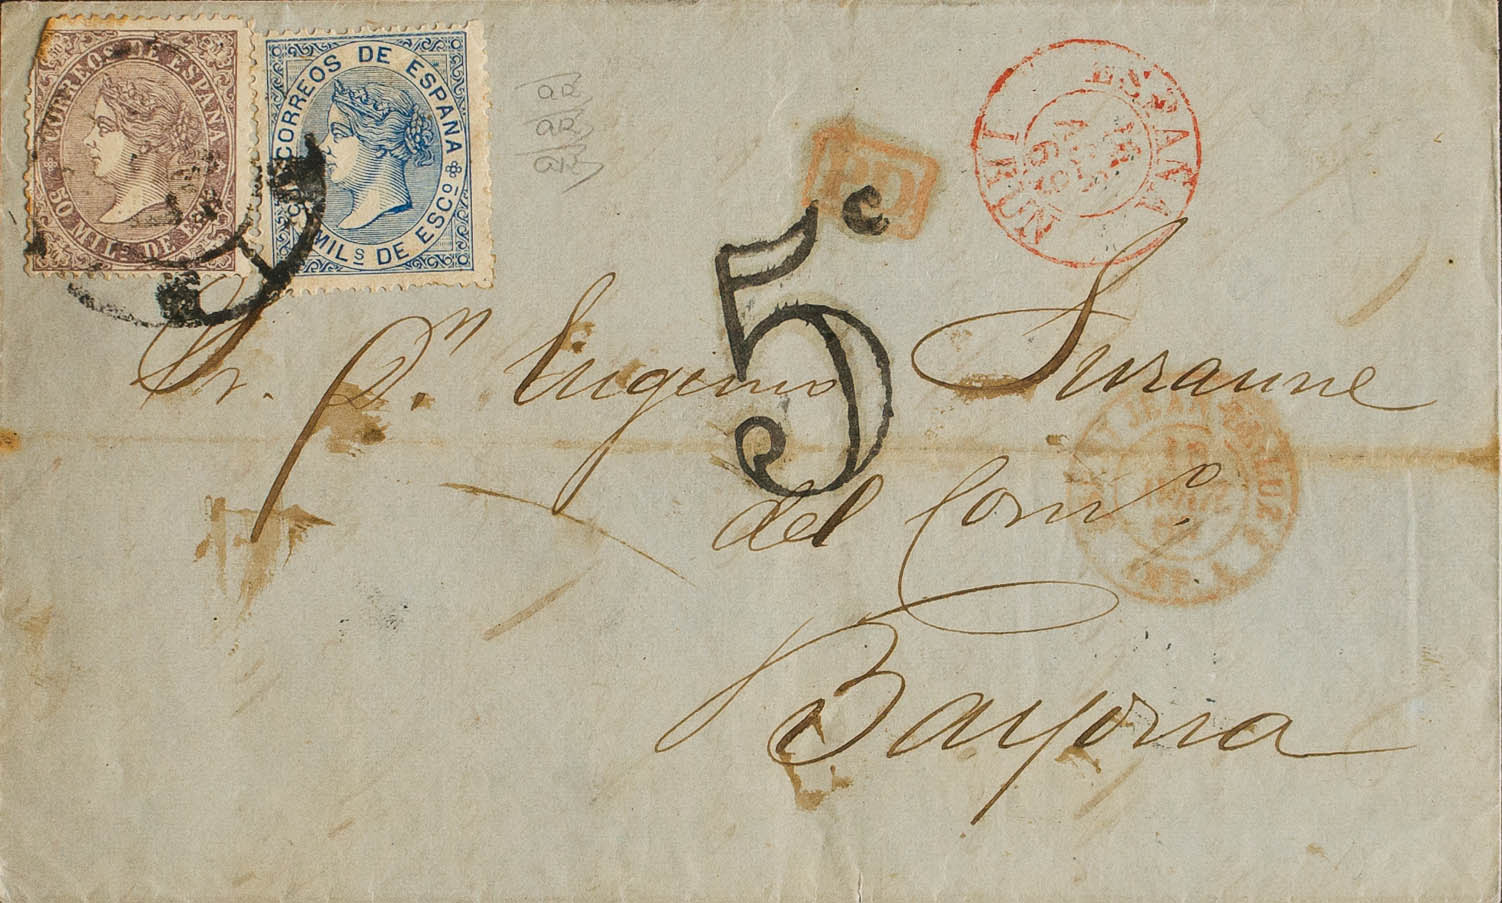 CORREOS DE ESPAÑA
50 MIL.S DE ES
CORREOS DE ESPAÑA
MILS DE ESCº
PD
ESPAÑA
IRUN
5c
Sr. Dn. Eugenio Suzanne
del Comº.
Bayona
ST JEAN DE LUZ